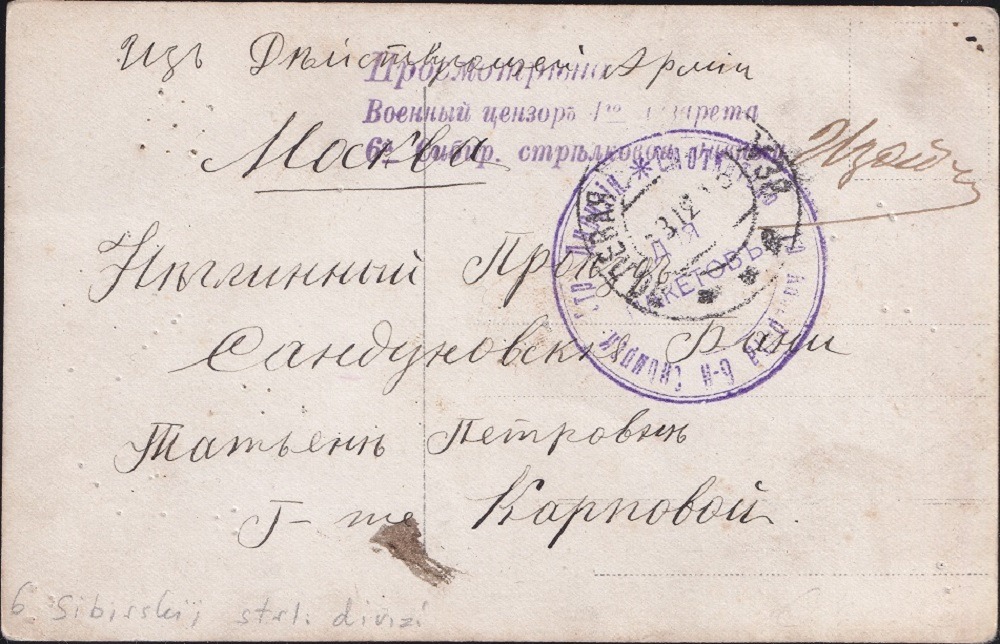 Изъ Дѣйствующей Арміи
Просмотрѣно
Военный цензоръ 1го лазарета
6й Сибир. стрѣлковой дивизіи
Москва
Нѣглинный Проѣздъ
Сандуновскія Бани
Татьенѣ Петровнѣ
Г-жѣ Карповой.
ДЛЯ
ПАКЕТОВЪ
6-й Сибирск.
6 Sibirskij strl. divizi